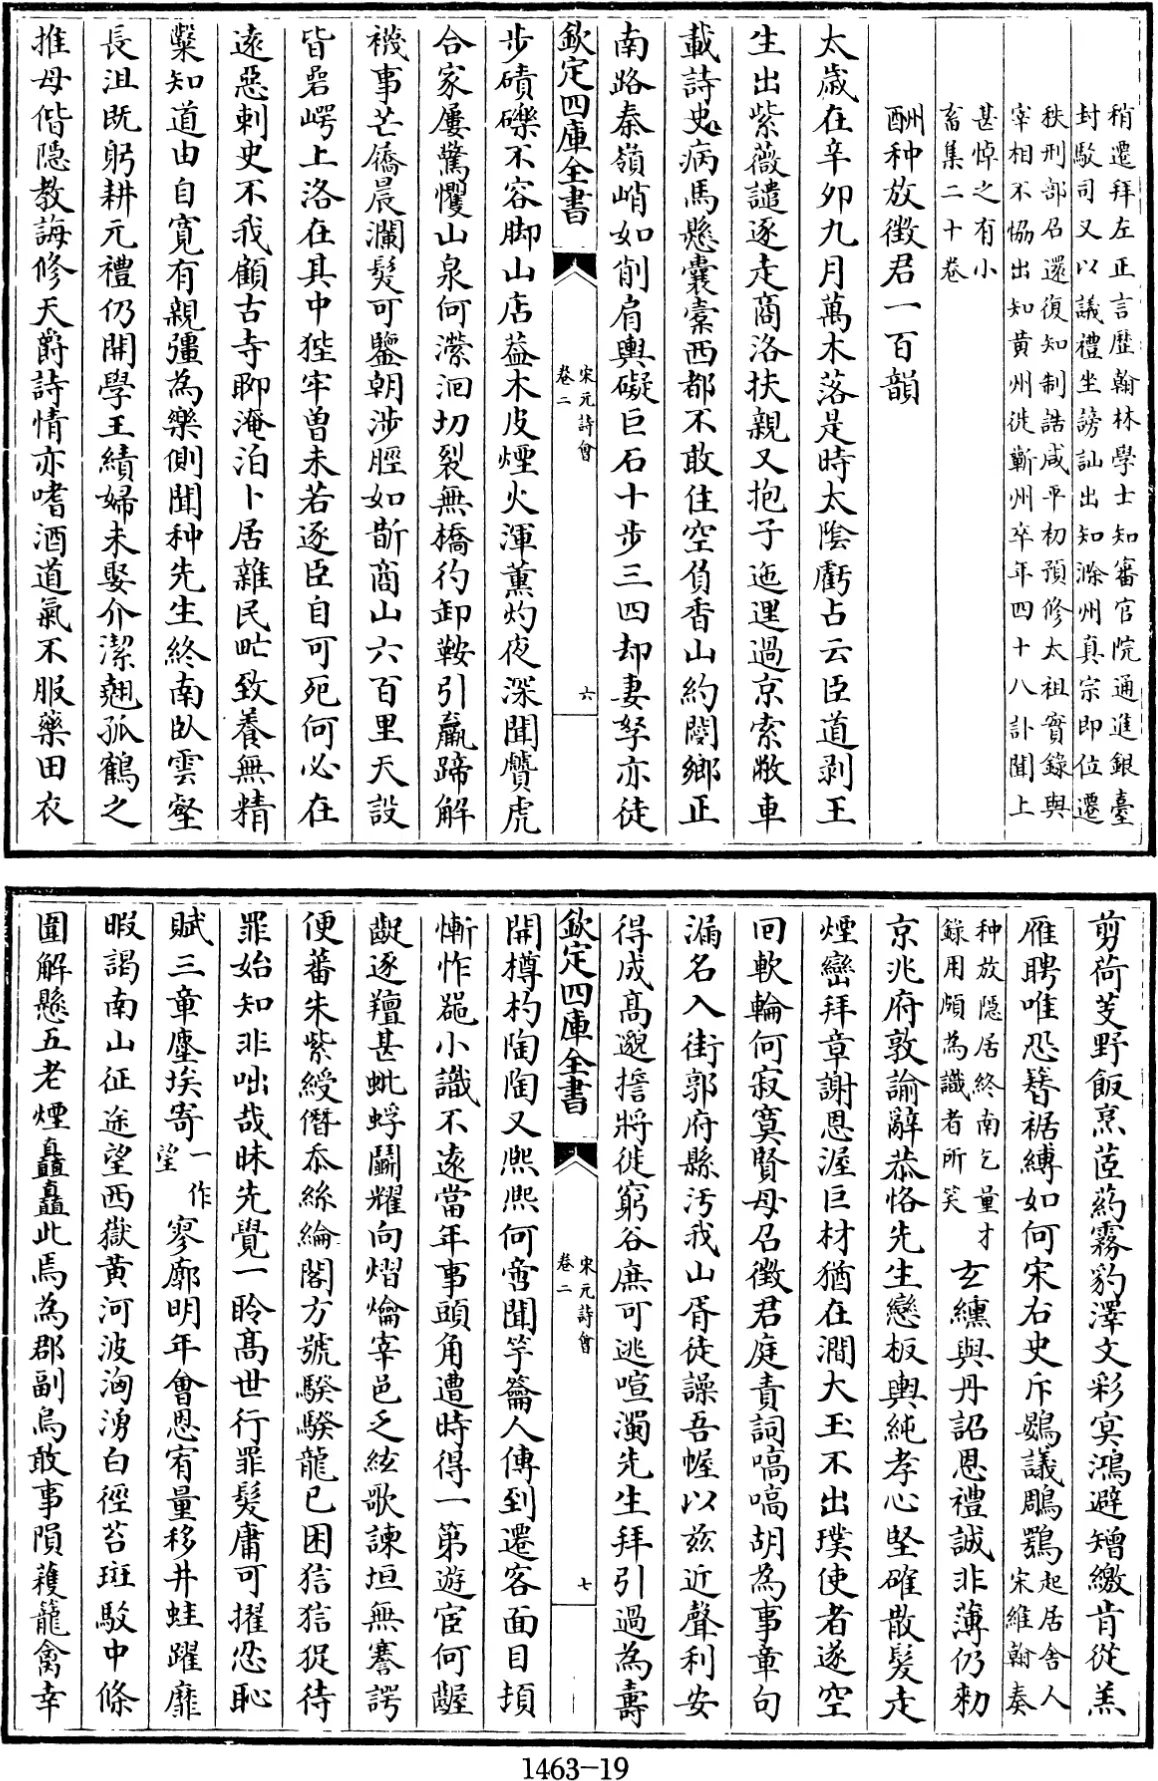 稍遷拜左正言歷翰林學士知審官院通進銀臺
封駁司又以議禮坐謗訕出知滁州真宗即位遷
秩刑部召還復知制誥咸平初預修太祖實錄與
宰相不恊出知黄州徙蘄州卒年四十八訃聞上
甚悼之有小
畜集二十卷
酬种放徴君一百韻
太歲在辛夘九月萬木落是時太陰虧占云臣道剥王
生出紫薇譴逐走商洛扶親又抱子迤𨓦過京索敝車
載詩史病馬懸囊橐西都不敢住空負香山約閿鄉正
南路秦嶺峭如削肩輿礙巨石十步三四却妻孥亦徒
欽定四庫全書
宋元詩會
卷二
六
步磧礫不容脚山店葢木皮煙火渾薰灼夜深聞贙虎
合家屢驚懼山泉何瀠洄切裂無橋彴卸鞍引羸蹄解
襪事芒屩晨瀾髮可鑒朝涉脛如斮商山六百里天設
皆礐崿上洛在其中狴牢曽未若逐臣自可死何必在
逺惡刺史不我顧古寺聊淹泊卜居雜民甿致養無精
糳知道由自寛有親彊為樂側聞种先生終南臥雲壑
長沮既躬耕元禮仍開學王績婦未娶介潔翹孤鶴之
推母偕隠教誨修天爵詩情亦嗜酒道氣不服藥田衣
剪荷芰野飯烹茝葯霧豹澤文彩㝠鴻避矰繳肯從羔
雁聘唯恐簪裾縛如何宋右史斥鷃議鵰鶚
起居舍人
宋維翰奏
种放隠居終南乞量才
錄用頗為識者所笑
玄纁與丹詔恩禮誠非薄仍勑
京兆府敦諭辭恭恪先生戀板輿純孝心堅確散髮走
煙巒拜章謝恩渥巨材猶在澗大玉不出璞使者遂空
回軟輪何寂寞賢母召徴君庭責詞嗃嗃胡為事章句
漏名入街郭府縣汚我山胥徒譟吾幄以兹近聲利安
得成髙邈擔將徙窮谷庶可逃喧濁先生拜引過為壽
欽定四庫全書
宋元詩會
卷二
七
開樽杓陶陶又熈熈何啻聞竽籥人傳到遷客面目頳
慚怍器小識不逺當年事頭角遭時得一第遊宦何齷
齪逐羶甚蚍蜉鬬耀向熠爚宰邑乏絃歌諫垣無謇諤
便蕃朱紫綬僭忝絲綸閣方號騤騤龍已困狺狺㹱待
罪始知非咄哉昧先覺一聆髙世行罪髮庸可擢忍恥
賦三章塵埃寄
一作
望
寥廓明年會恩宥量移井蛙躍靡
暇謁南山征途望西嶽黄河波洶湧白徑苔斑駮中條
圍解懸五老煙矗矗此焉為郡副烏敢事隕穫籠禽幸
1463-19